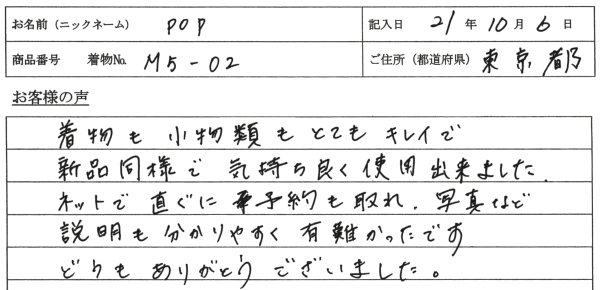 お名前（ニックネーム） POP 記入日 21 年 10 月 6 日
商品番号 着物No. M5-02 ご住所（都道府県） 東京都
お客様の声
着物も小物類もとてもキレイで
新品同様で気持ち良く使用出来ました.
ネットで直ぐに予約も取れ.写真など
説明も分かりやすく有難かったです
どうもありがとうございました。